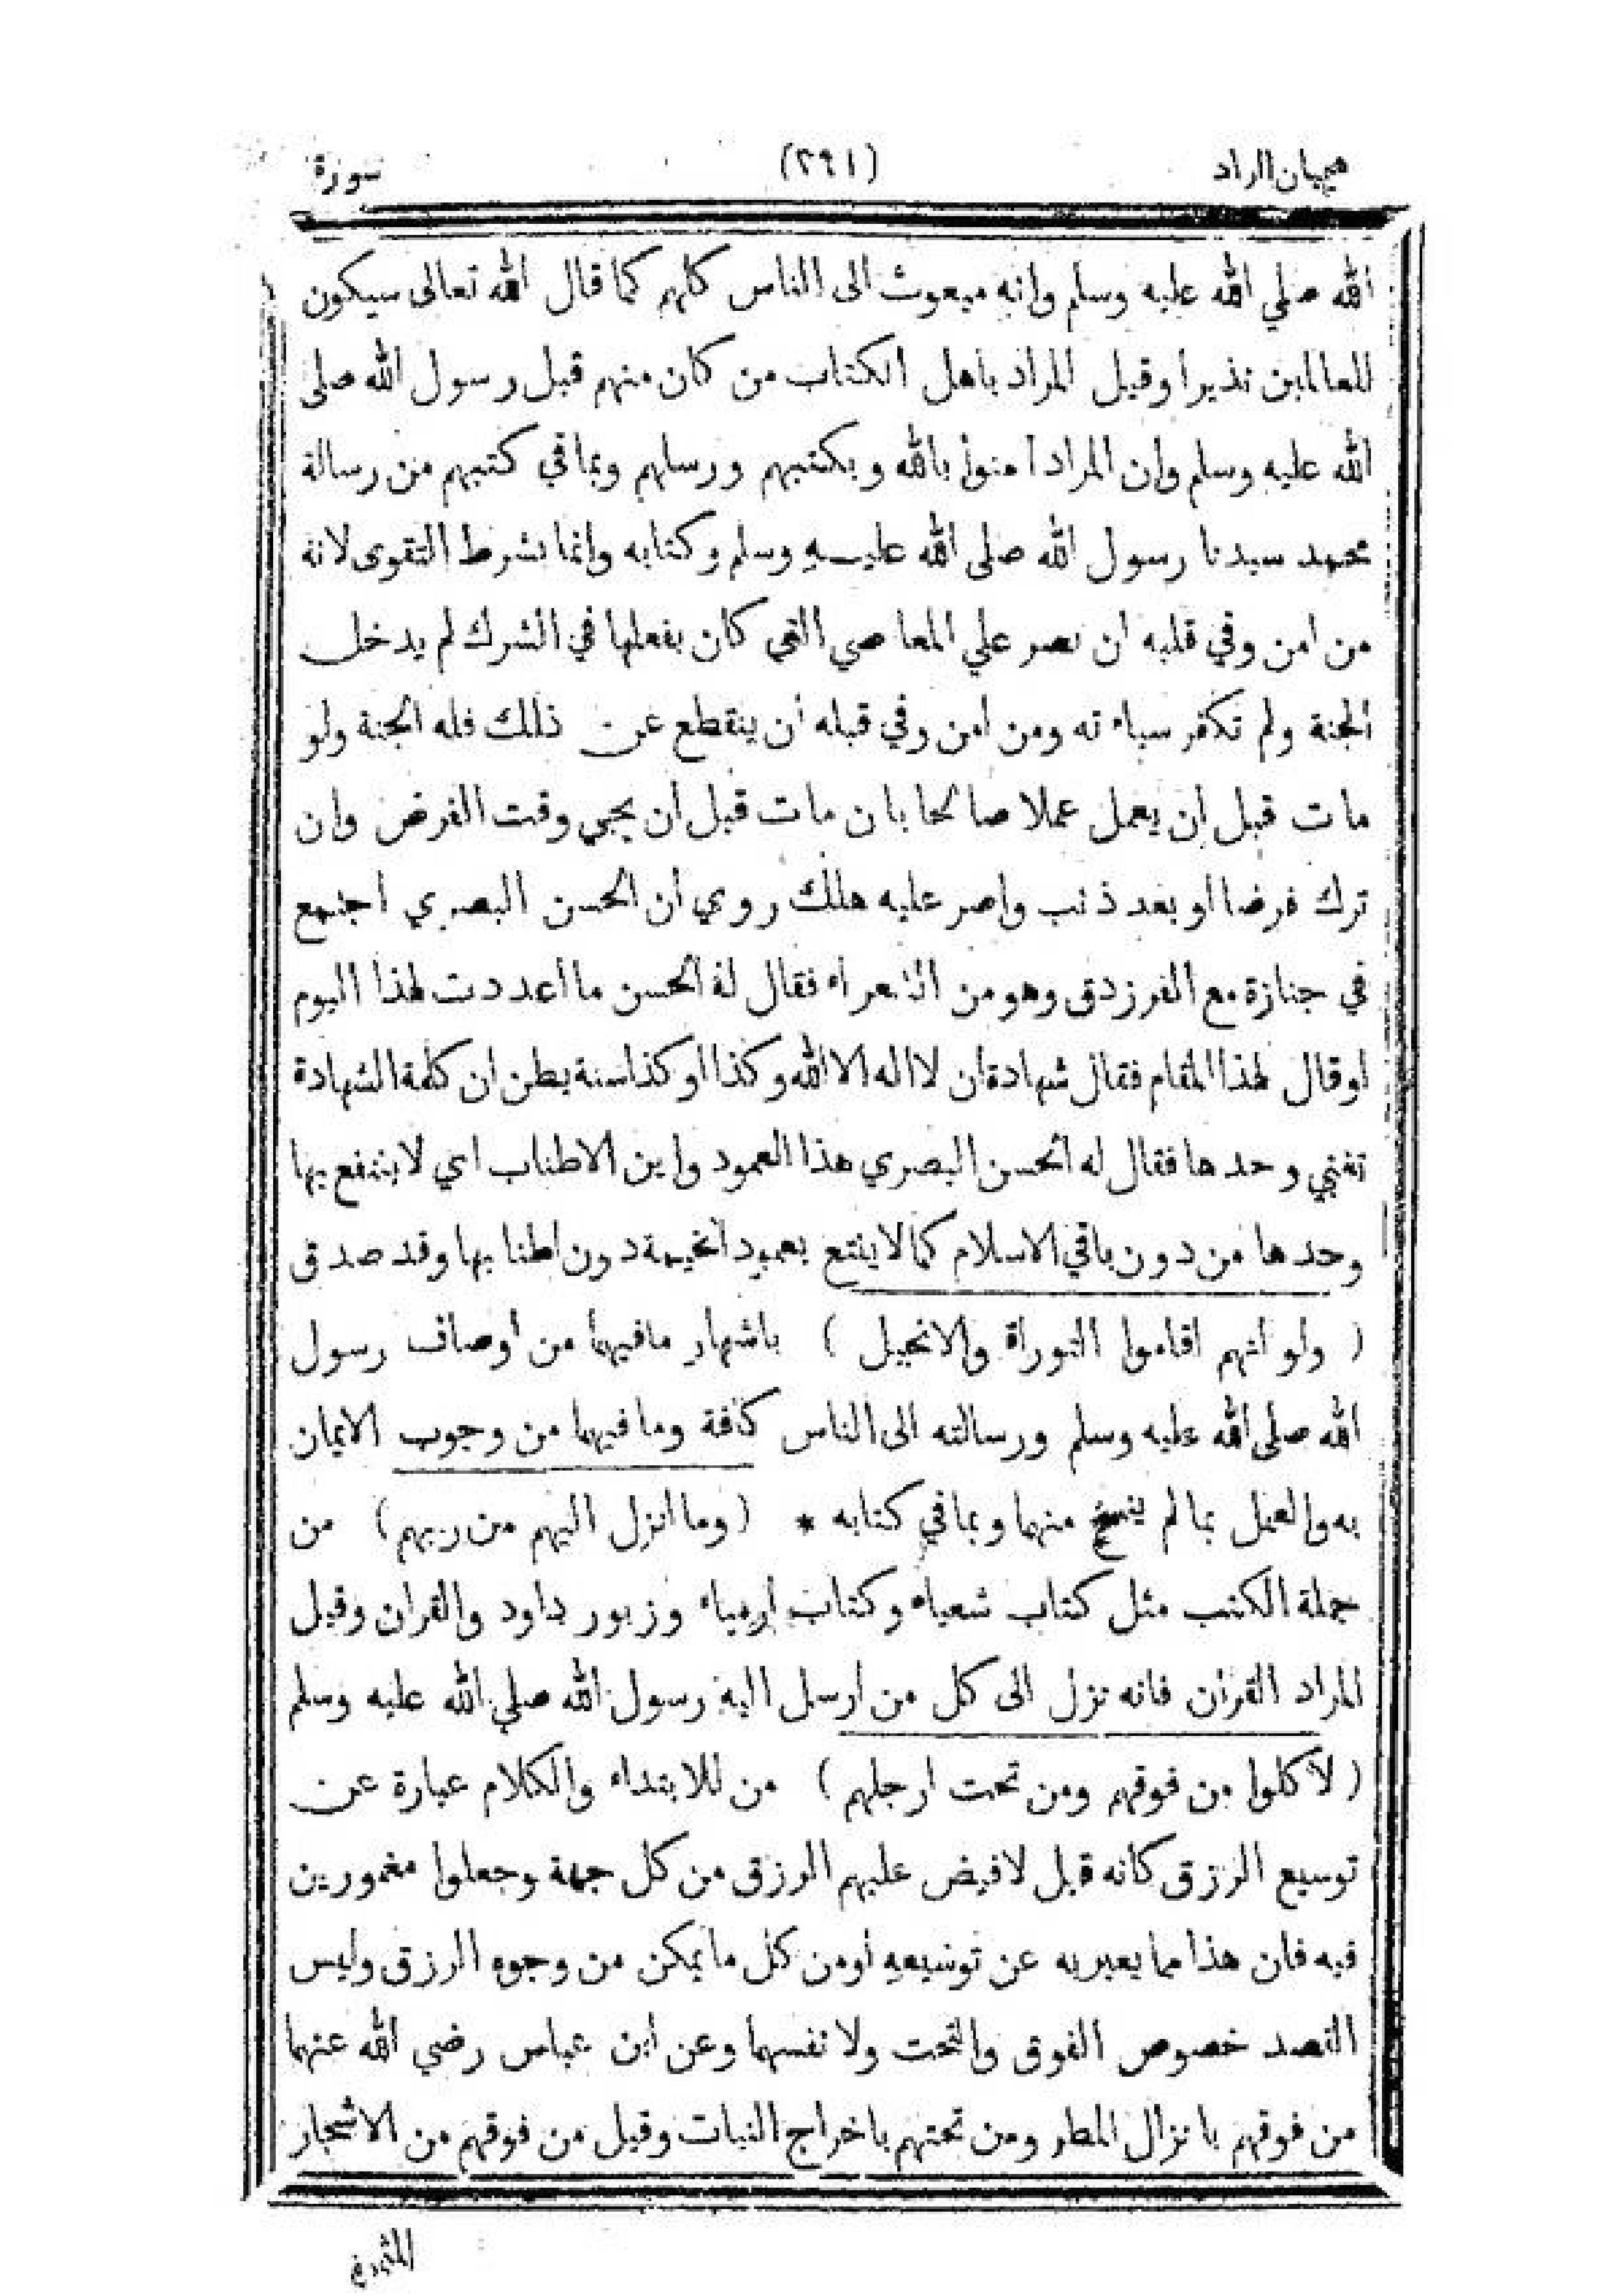 هميان الزاد (٢٩١) سورة
الله صلي الله عليه وسلم وانه مبعوث الى الناس كلهم كما قال الله تعالى سيكون
للعالمين نذيرا وقيل المراد باهل الكتاب من كان منهم قبل رسول الله صلى
الله عليه وسلم وان المراد آمنوا بالله وبكتبهم ورسلهم وبما في كتبهم من رسالة
محمد سيدنا رسول الله صلى الله عليه وسلم وكتابه وانما نشرط التقوى لانه
من امن وفي قلبه ان يصر علي المعاصي التي كان يفعلها في الشرك لم يدخل
الجنة ولم تكفر سياءته ومن امن وفي قبله ان ينقطع عن ذلك فله الجنة ولو
مات قبل ان يعمل عملا صالحا بان مات قبل ان يجي وقت الفرض وان
ترك فرضا او بعد ذنب واصر عليه هلك روي ان الحسن البصري اجتمع
في جنازة مع الفرزدق وهو من الشعراء فقال له الحسن ما اعددت لهذا اليوم
او قال لهذا المقام فقال شهادة ان لا اله الا الله وكذا او كذا سنة يظن ان كلمة الشهادة
تغني وحدها فقال له الحسن البصري هذا العمود واين الاطناب اي لا ينتفع بها
وحدها من دون باقي الاسلام كما لا ينتع بعمود الخيمة دون اطنابها وقد صدق
( ولو انهم اقاموا التوراة والانجيل ) باشهار ما فيهما من اوصاف رسول
الله صلى الله عليه وسلم ورسالته الى الناس كافة وما فيهما من وجوب الايمان
به والعمل بما لم ينسخ منهما وبما في كتابه * ( وما انزل اليهم من ربهم ) من
جملة الكتب مثل كتاب شعياء وكتاب ارمياء وزبور داود والقران وقيل
المراد القران فانه نزل الى كل من ارسل اليه رسول الله صلي الله عليه وسلم
( لأكلوا من فوقهم ومن تحت ارجلهم ) من للابتداء والكلام عبارة عن
توسيع الرزق كانه قيل لافيض عليهم الرزق من كل جهة وجعلوا مغمورين
فيه فان هذا مما يعبر به عن توسيعه او من كل ما يمكن من وجوه الرزق وليس
القصد خصوص الفوق والتحت ولا نفسهما وعن ابن عباس رضي الله عنهما
من فوقهم بانزال المطر ومن تحتهم باخراج النبات وقيل من فوقهم من الاشجار